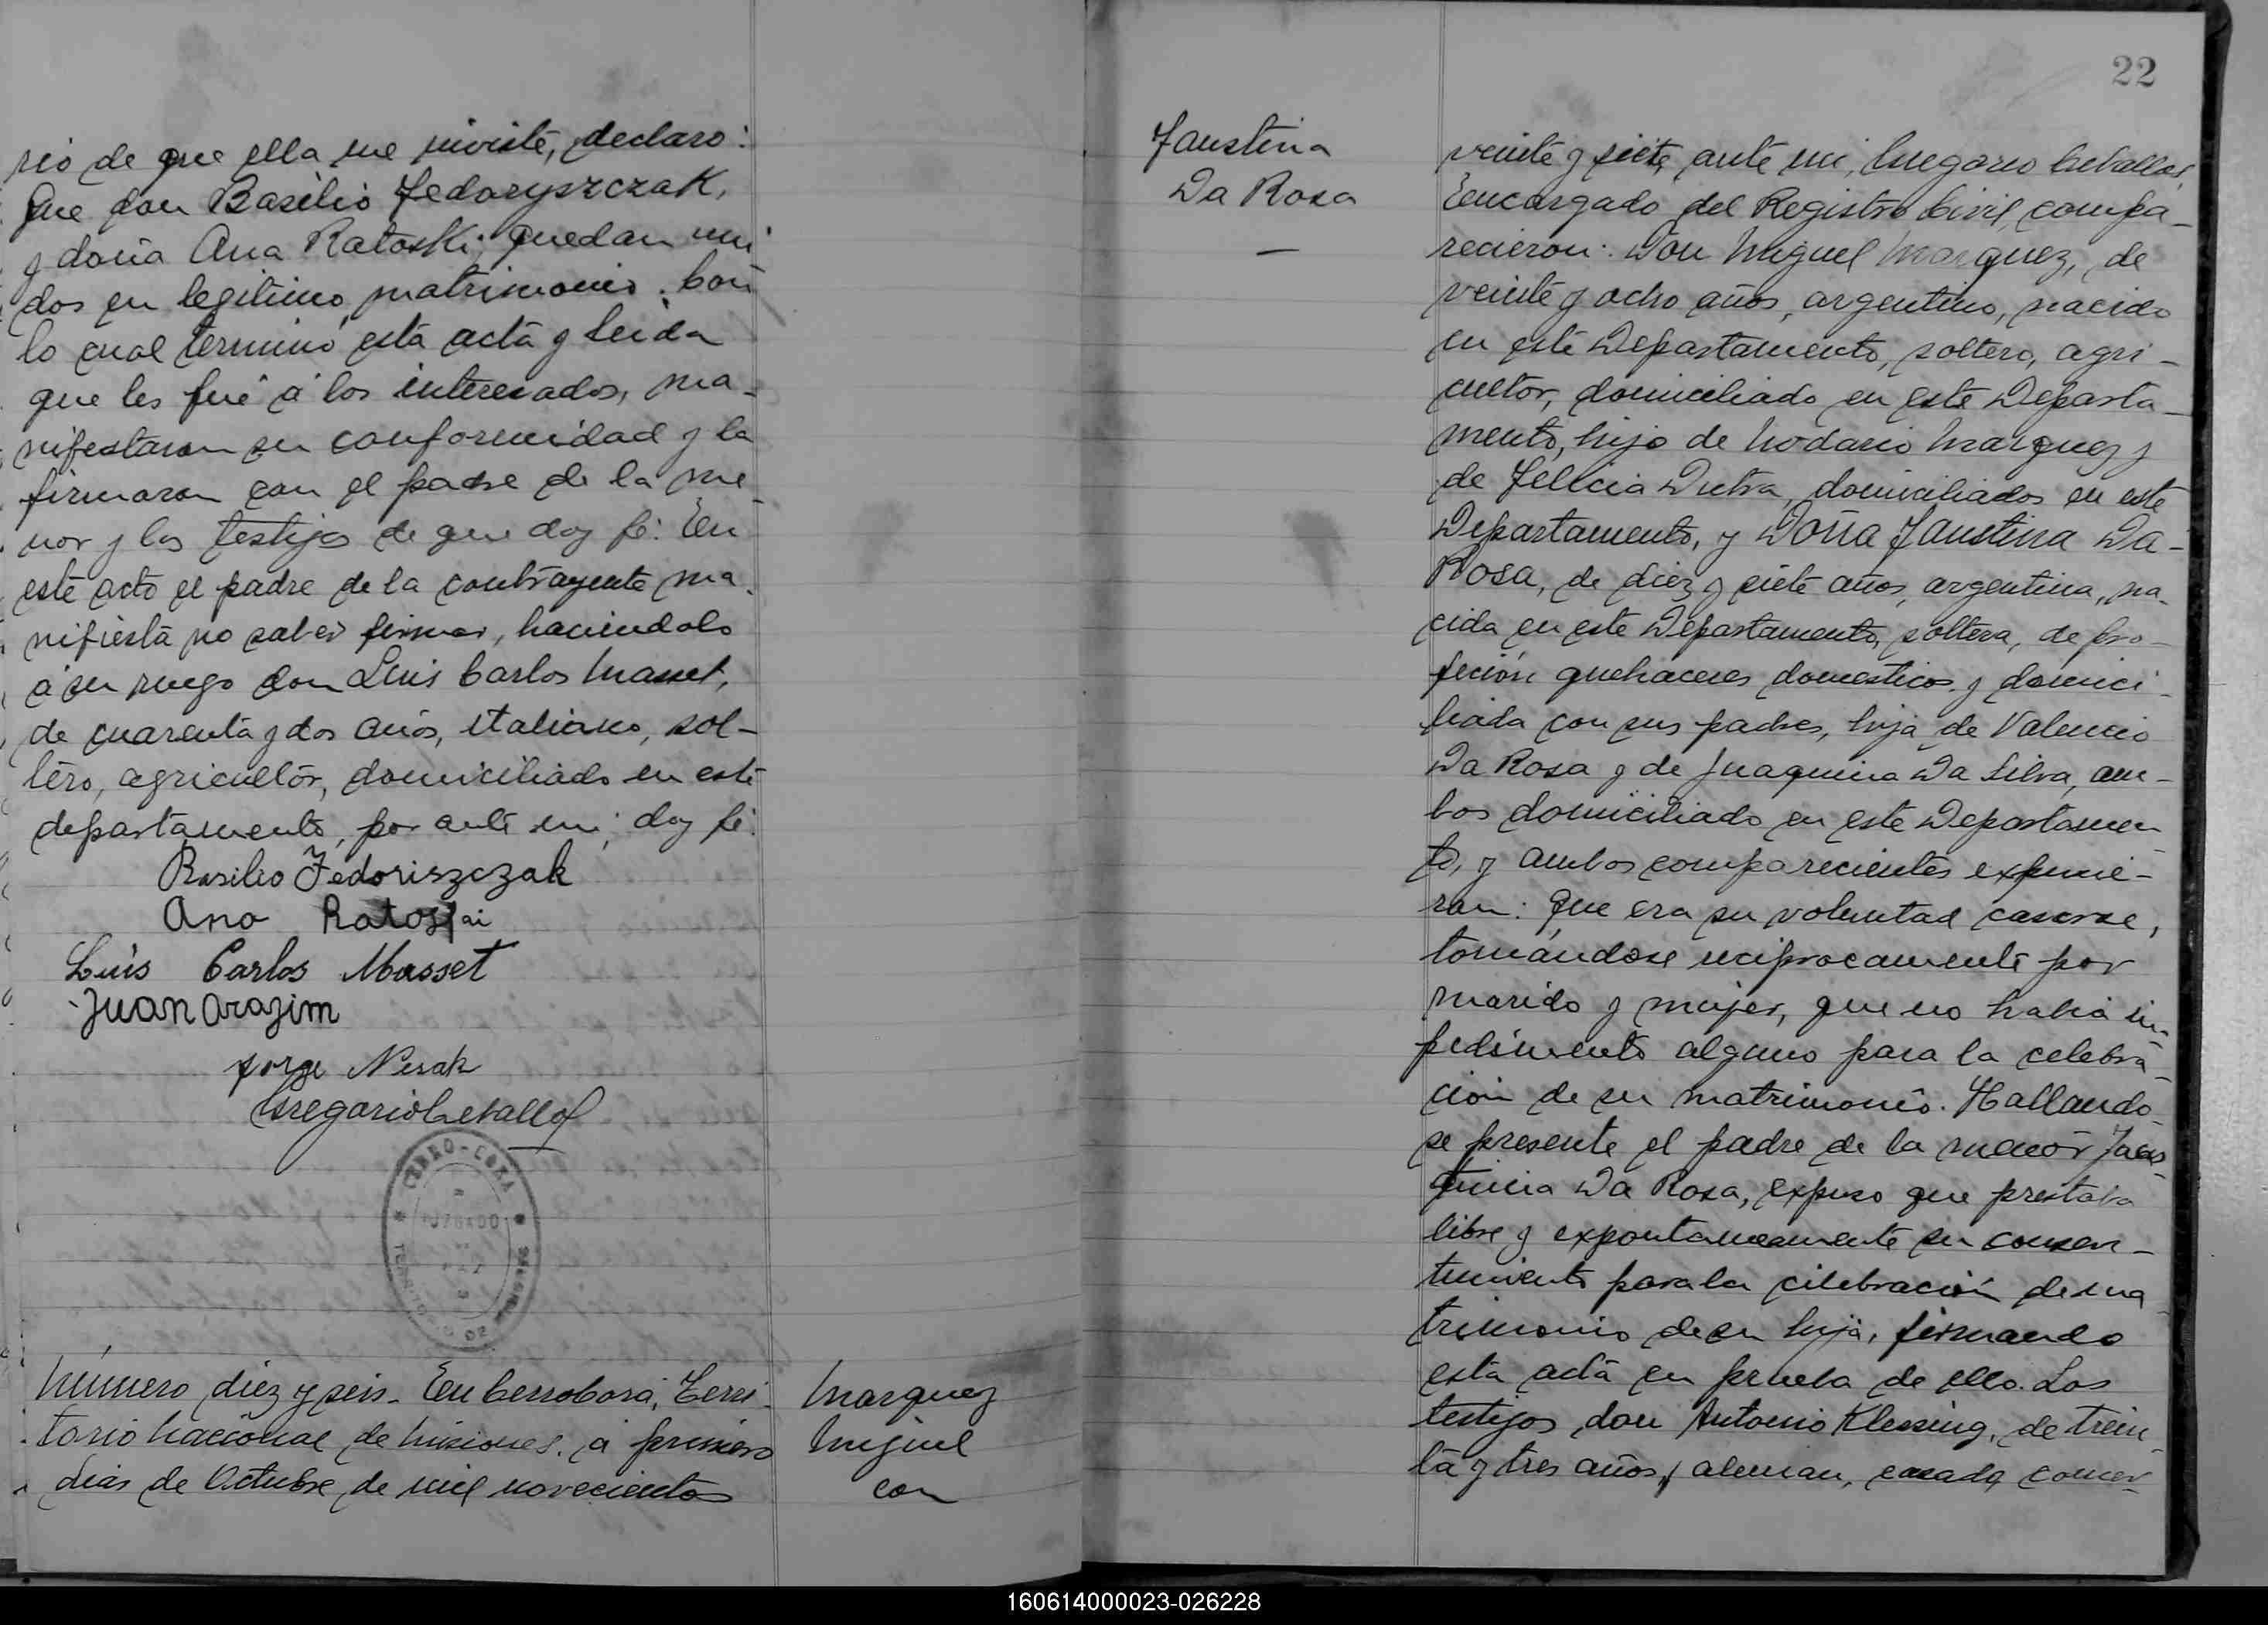 rio de que ella me inviste, declaro:
Que don Basilio Fedoryszczak,
y doña Ana Ratoski; quedan uni
dos en legitimo matrimonio. Con
lo cual terminó esta acta y leida
que les fué á los interesados, ma-
nifestaron su conformidad y la
firmaron con el padre de la me-
nor y los testigos de que doy fé: En
este acto el padre de la contrayente ma-
nifiesta no saber firmar, haciendolo
á su ruego don Luis Carlos Masset,
de cuarenta y dos años, italiano, sol-
tero, agricultor, domiciliado en este
departamento, por ante mi; doy fé.
Basilio Fedoriszczak
Ana
Luis Carlos Masset
Juan Orazim
Jorge Nesak
Gregorio Ceballos
CERRO-CORA
JUZGADO
DE
PAZ
TERRITORIO DE MISIONES
Número diez y seis- En Cerro Corá, Terri-
torio Nacional de Misiones. a primero
dias de Octubre de mil novecientos
Marquez
Miguel
con
22
Faustina
Da Rosa
—
veinte y siete, ante mi, Gregorio Ceballos,
Encargado del Registro Civil, compa-
recieron: Don Miguel Marquez, de
veinte y ocho años, argentino, nacido
en este Departamento, soltero, agri-
cultor, domiciliado en este Departa-
mento, hijo de Nodario Marquez y
de Felicia Dutra, domiciliados en este
Departamento, y Doña Faustina Da-
Rosa, de diez y siete años, argentina, na-
cida en este Departamento, soltera, de pro-
feción quehaceres domesticos, y domici-
liada con sus padres, hija de Valencio
Da Rosa y de Juaquina Da Silva, am-
bos domiciliado en este Departamen
to, y ambos comparecientes expusie-
ran: Que era su voluntad casarse,
tomándose reciprocamente por
marido y mujer, que no habia im-
pedimento alguno para la celebra-
ción de su matrimonio. Hallando
se presente el padre de la menor Faus-
tinia Da Rosa, expuso que prestaba
libre y expontaneamente su consen-
timiento para la cilebración de ma-
trimonio de su hija, firmando
esta acta en prueba de ello. Los
testigos don Antonio Klessing, de trein
ta y tres años, aleman, casado, comer-
160614000023-026228